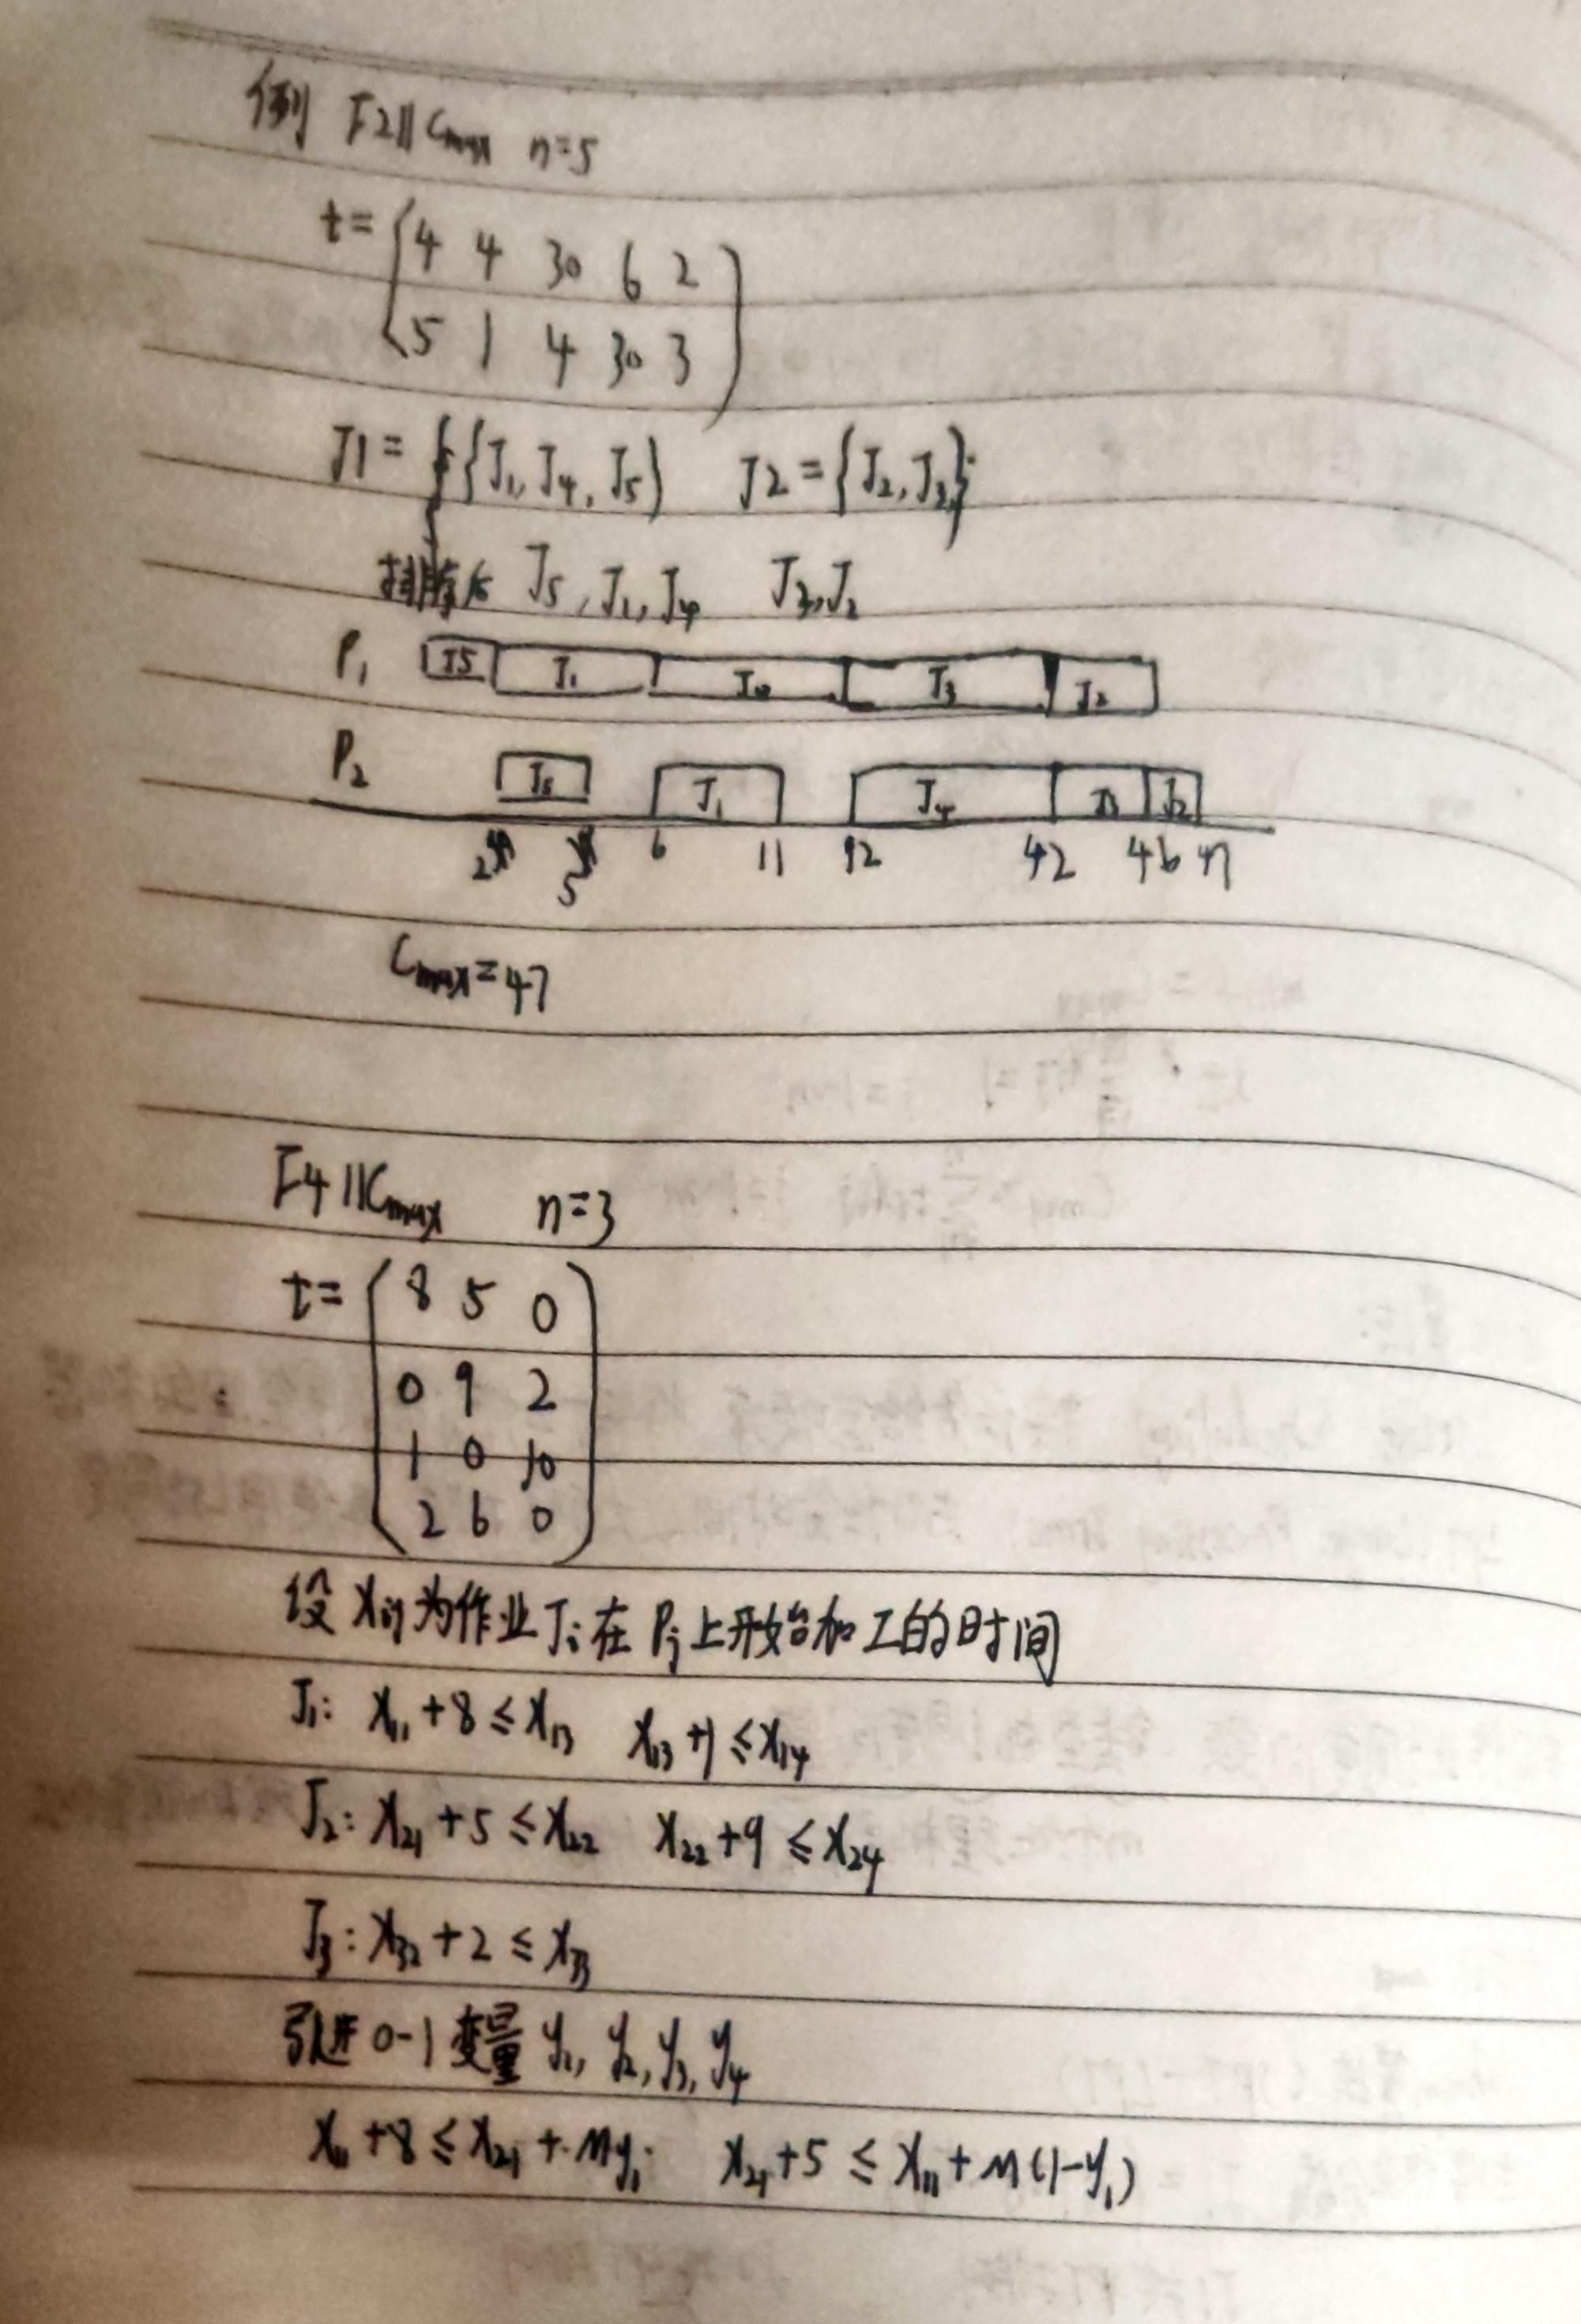 例 F2||Cmax n=5
t= (4 4 30 6 2
5 1 4 30 3)
J1= {J1, J4, J5) J2={J2,J3};
排序后 J5, J1, J4 J3, J2
P1 J5 J1 J4 J3 J2
P2 J5 J1 J4 J3 J2
2 5 6 11 12 42 46 47
Cmax=47
F4||Cmax n=3
t= (8 5 0
0 9 2
1 0 10
2 6 0)
设 xij为作业Ji在 Pj上开始加工的时间
J1: x11+8≤x13 x13+1≤x14
J2: x21+5≤x22 x22+9≤x24
J3: x32+2≤x33
引进0-1变量 y1, y2, y3, y4
x11+8≤x21+My1 x21+5≤x11+M(1-y1)